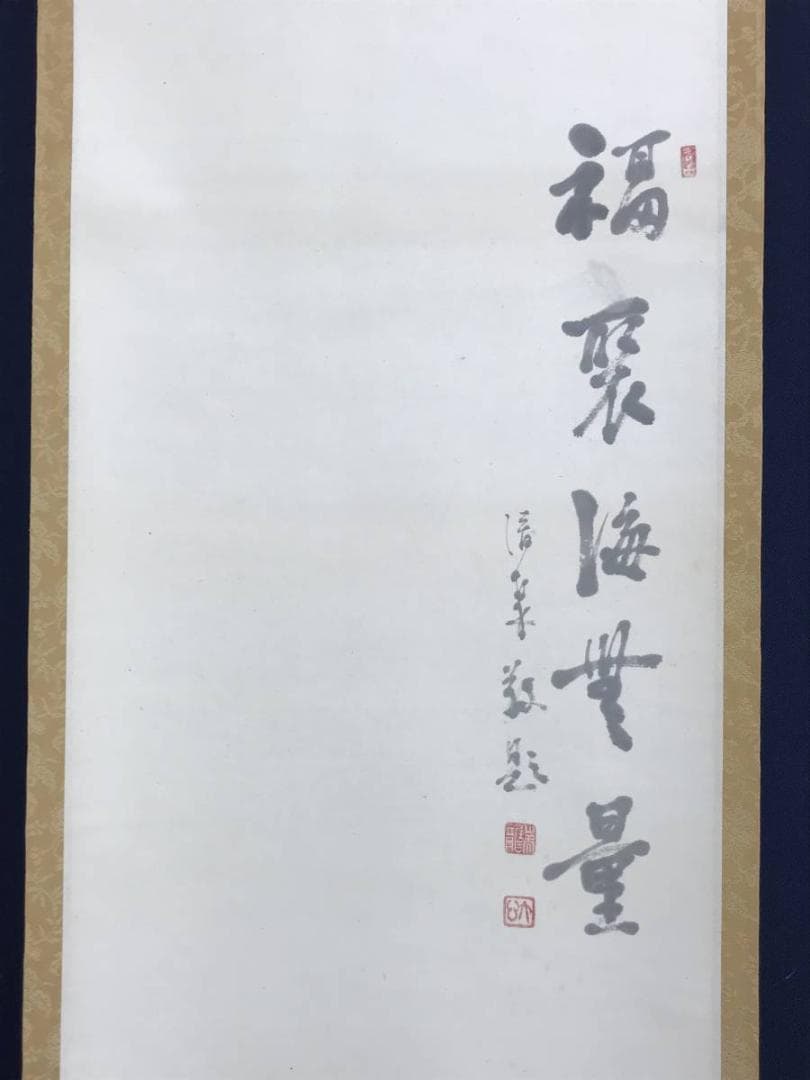 福聚海無量
敬題